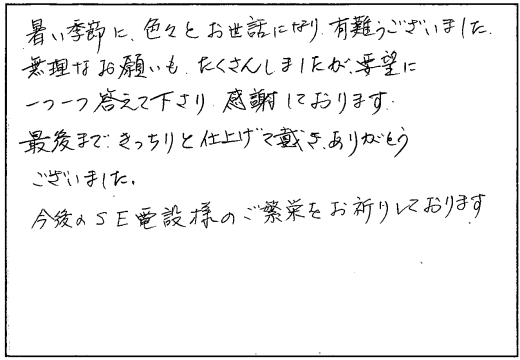 暑い季節に、色々とお世話になり有難うございました。
無理なお願いも、たくさんしましたが、要望に
一つ一つ答えて下さり感謝しております。
最後まで、きっちりと仕上げて戴き、ありがとう
ございました。
今後のSE電設様のご繁栄をお祈りしております